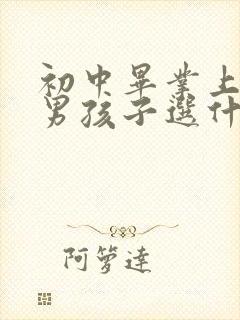 初中畢業上
男孩子選什
阿箩達